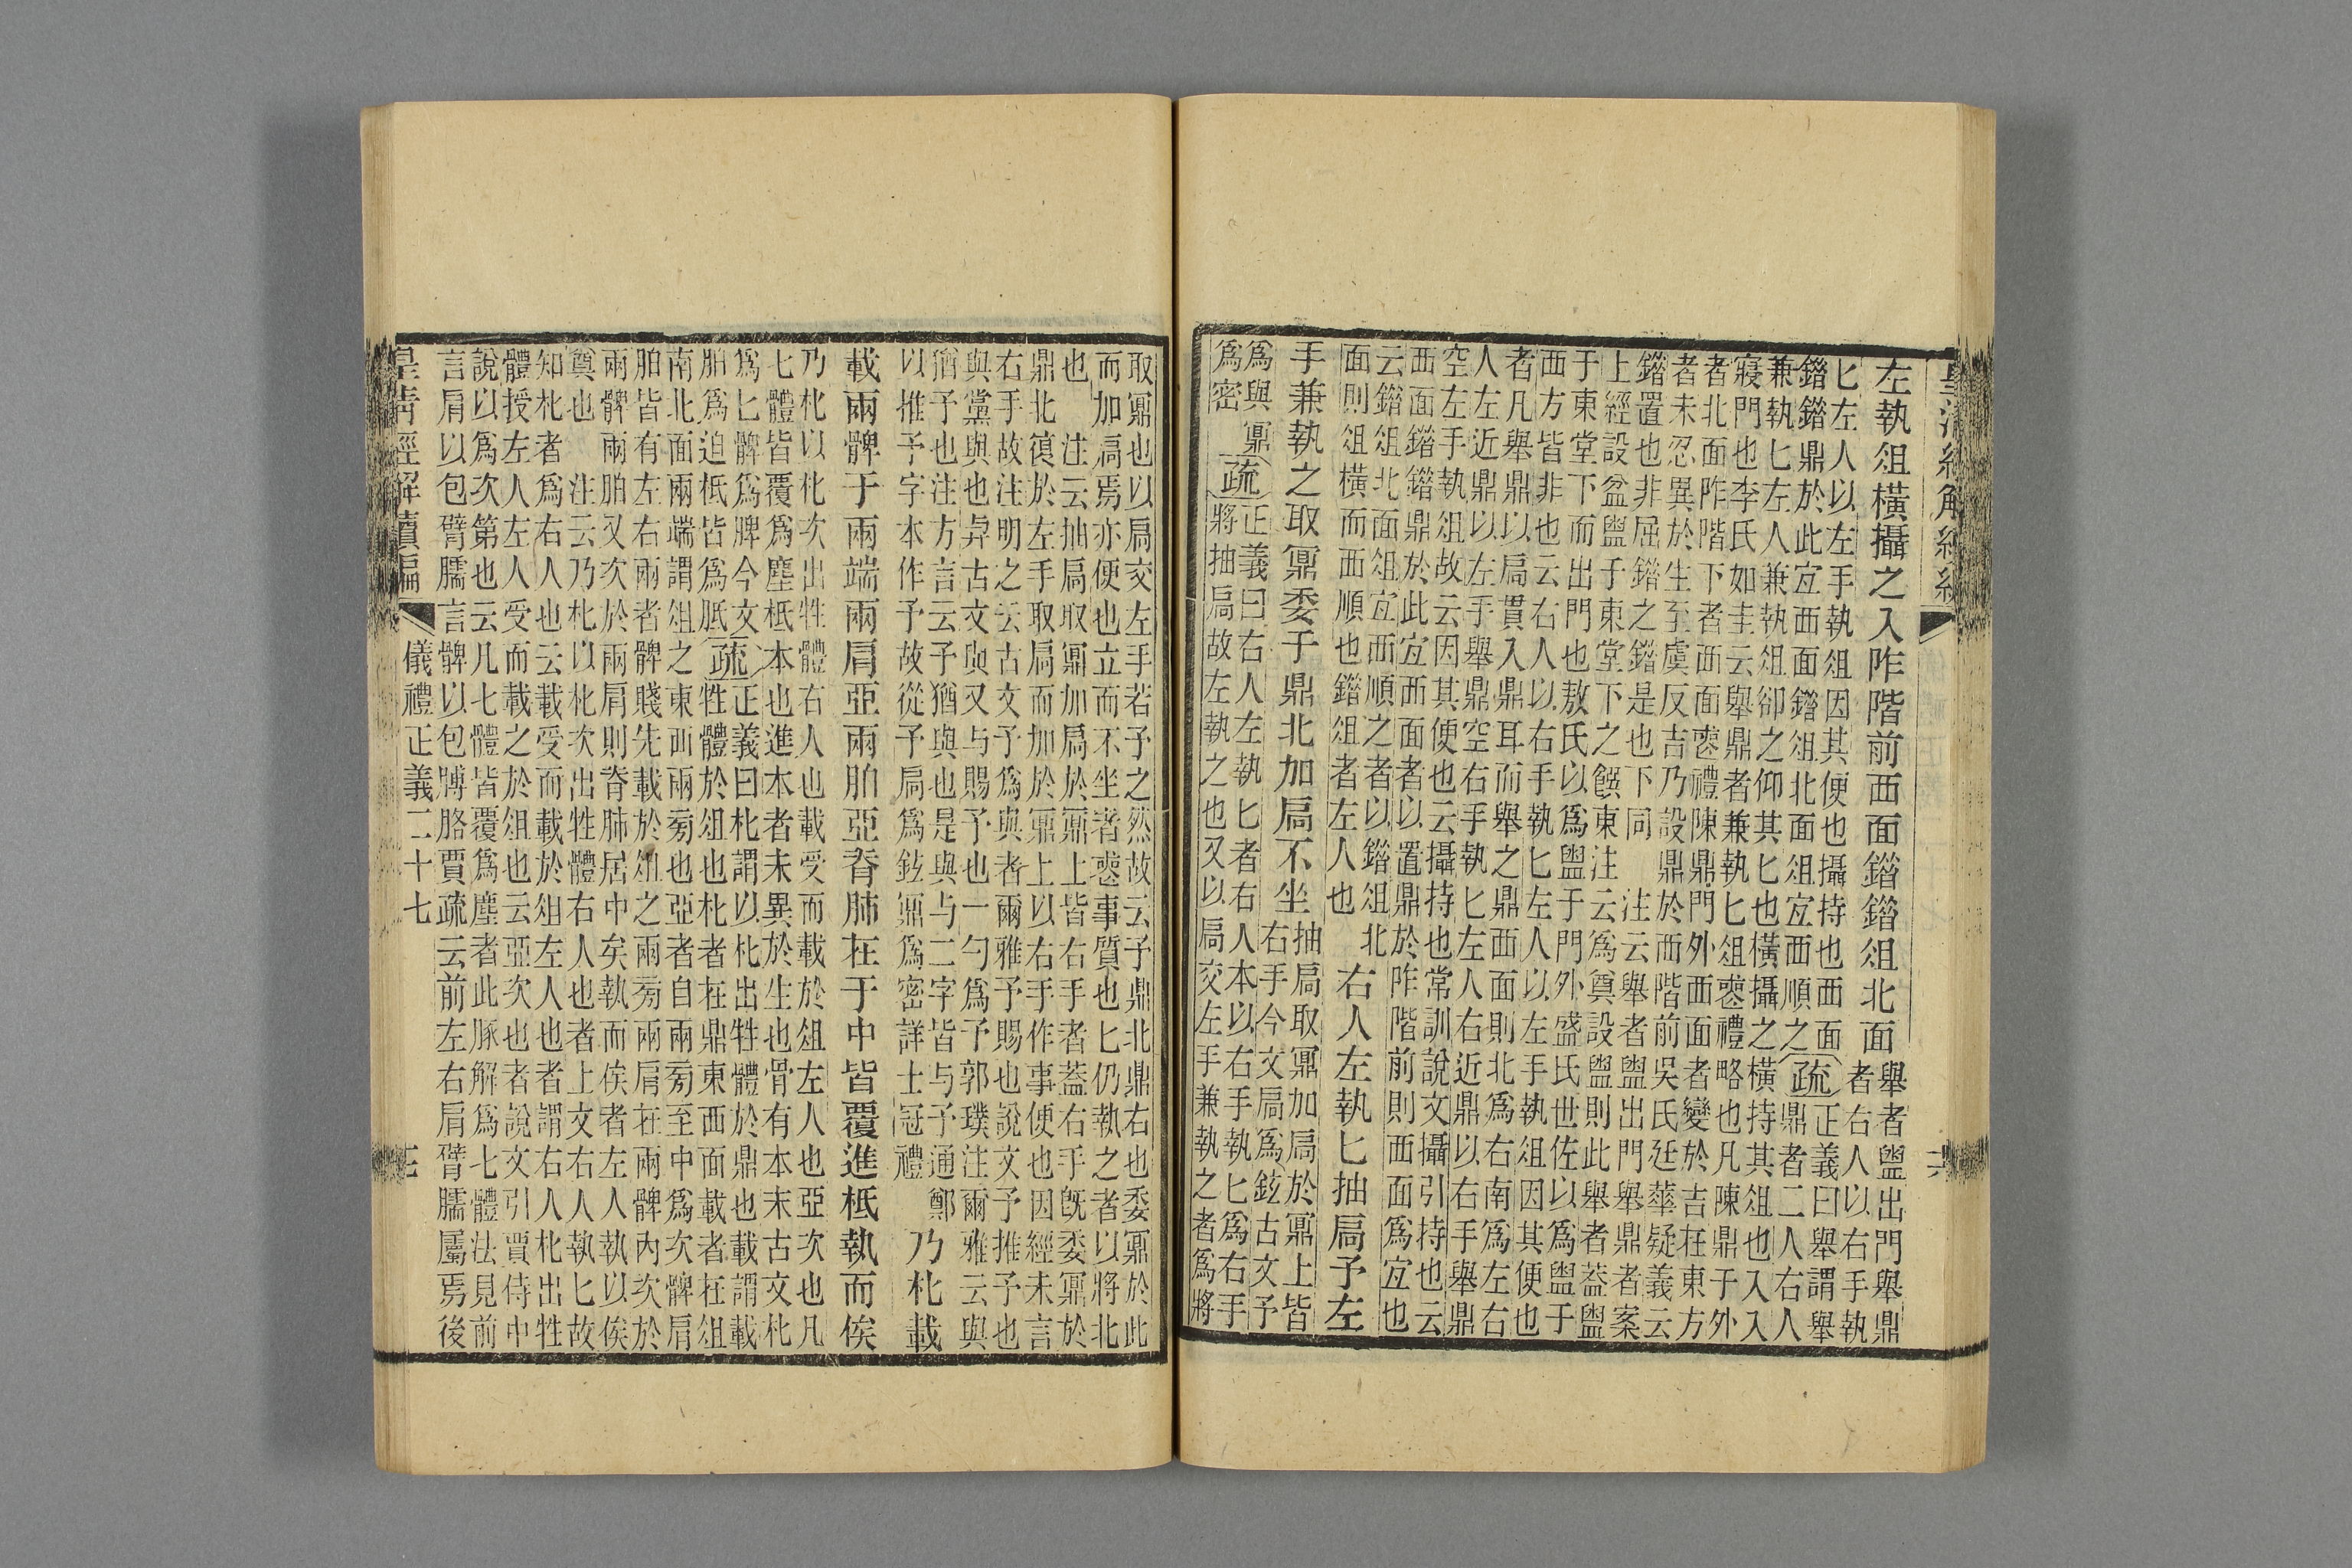 皇清經解續編
左執俎橫攝之入阼階前西面錯錯俎北面
舉者盥出門舉鼎
者右人以右手執
匕左人以左手執俎因其便也攝持也西面
錯錯鼎於此宜西面錯俎北面俎宜西順之
疏
正義曰舉謂舉
鼎者二人右人
兼執匕左人兼執俎卻之仰其匕也橫攝之橫持其俎也入入
寢門也李氏如圭云舉鼎者兼執匕俎喪禮略也凡陳鼎于外
者北面阼階下者西面喪禮陳鼎門外西面者變於吉在東方
者未忍異於生至虞反吉乃設鼎於西階前吳氏廷華疑義云
錯置也非屈錯之錯是也下同 注云舉者盥出門舉鼎者案
上經設盆盥于東堂下之饌東注云爲奠設盥則此舉者蓋盥
于東堂下而出門也敖氏以爲盥于門外盛氏世佐以爲盥于
西方皆非也云右人以右手執匕左人以左手執俎因其便也
者凡舉鼎以扃貫入鼎耳而舉之鼎西面則北爲右南爲左右
人左近鼎以左手舉鼎空右手執匕左人右近鼎以右手舉鼎
空左手執俎故云因其便也云攝持也常訓說文攝引持也云
西面錯錯鼎於此宜西面者以置鼎於阼階前則西面爲宜也
云錯俎北面俎宜西順之者以錯俎北
面則俎橫而西順也錯俎者左人也
右人左執匕抽扃予左
手兼執之取鼏委于鼎北加扃不坐
抽扃取鼏加扃於鼏上皆
右手今文扃爲鉉古文予
爲與鼏
爲密
疏
正義曰右人左執匕者右人本以右手執匕爲右手
將抽扃故左執之也又以扃交左手兼執之者爲將
取鼏也以扃交左手若予之然故云予鼎北鼎右也委鼏於此
而加扃焉亦便也立而不坐者喪事質也匕仍執之者以將北
也 注云抽扃取鼏加扃於鼏上皆右手者蓋右手旣委鼏於
鼎北復於左手取扃而加於鼏上以右手作事便也因經未言
右手故注明之云古文予爲與者爾雅予賜也說文予推予也
與黨與也舁古文與又与賜予也一勺爲予郭璞注爾雅云與
猶予也注方言云予猶與也是與与二字皆与予通鄭
以推予字本作予故從予扃爲鉉鼏爲密詳士冠禮
乃朼載
載兩髀于兩端兩肩亞兩胉亞脊肺在于中皆覆進柢執而俟
乃朼以朼次出牲體右人也載受而載於俎左人也亞次也凡
七體皆覆爲塵柢本也進本者未異於生也骨有本末古文朼
爲匕髀爲脾今文
胉爲迫柢皆爲胝
疏
正義曰朼謂以朼出牲體於鼎也載謂載
牲體於俎也朼者在鼎東西面載者在俎
南北面兩端謂俎之東西兩旁也亞者自兩旁至中爲次髀肩
胉皆有左右兩者髀賤先載於俎之兩旁兩肩在兩髀內次於
兩髀兩胉又次於兩肩則脊肺居中矣執而俟者左人執以俟
奠也 注云乃朼以朼次出牲體右人也者上文右人執匕故
知朼者爲右人也云載受而載於俎左人也者謂右人朼出牲
體授左人左人受而載之於俎也云亞次也者說文引賈侍中
說以爲次第也云凡七體皆覆爲塵者此豚解爲七體法見前
言肩以包臂臑言髀以包膞胳賈疏云前左右肩臂臑屬焉後
皇清經解續編
儀禮正義二十七